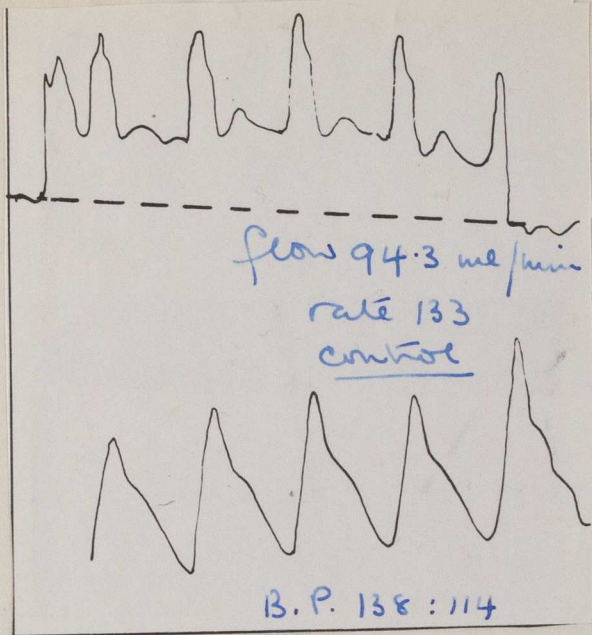 flow 94.3 ml/min
rate 133
control
B.P. 138 : 114